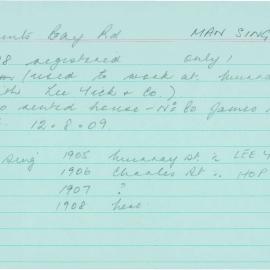 Bay Rd MAN SING
8 registered only!
(used to work at
Lee Yick & Co.)
rented house - No 80 James
12.8.09.
Sing 1905 Murray St. LEE Y
1906 Charles St HOP
1907 ?
1908 here